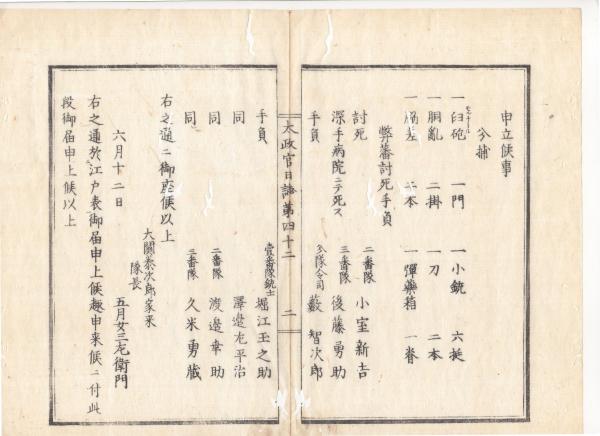 申立候事
分捕
一臼砲 一門 一小銃 六挺
一胴亂 二掛 一刀 二本
一脇差 二本 一彈藥箱 一脊
弊藩討死手負
討死 二番隊 小室新吉
深手病院ニテ死ス 三番隊 後藤勇助
手負 分隊令司 藪智次郎
太政官日誌第四十二 二
手負 壹番隊銃士 堀江壬之助
同 澤邉左平治
同 二番隊 渡邉幸助
同 三番隊 久米勇蔵
右之通ニ御座候以上
大關泰次郎家来
隊長 五月女三左衛門
六月十二日
右之通於江戸表御届申上候趣申来候ニ付此
段御届申上候以上